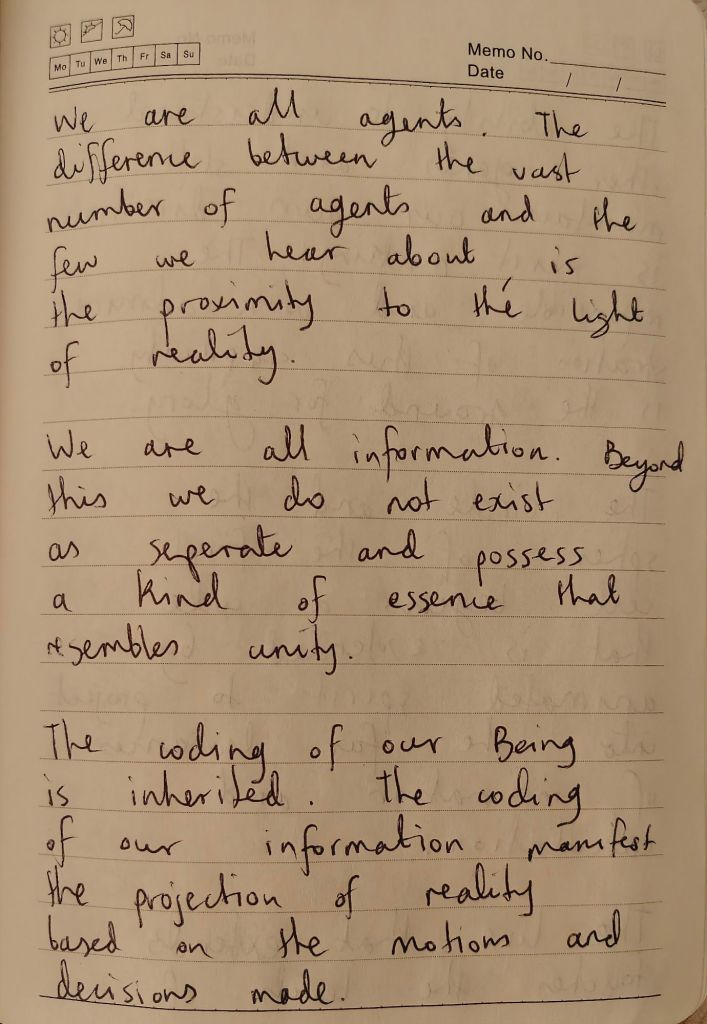 Mo Tu We Th Fr Sa Su
Memo No.
Date / /
We are all agents. The
difference between the vast
number of agents and the
few we hear about, is
the proximity to the light
of reality.
We are all information. Beyond
this we do not exist
as seperate and possess
a kind of essence that
resembles unity.
The coding of our Being
is inherited. The coding
of our information manifest
the projection of reality
based on the motions and
decisions made.